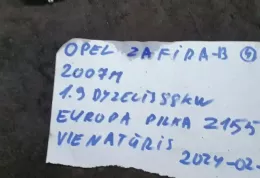 OPEL ZAFIRA-B ④
2007M
1.9 DYZELIS 88KW
EUROPA PILKA Z155
VIENATŪRIS
2024-02-